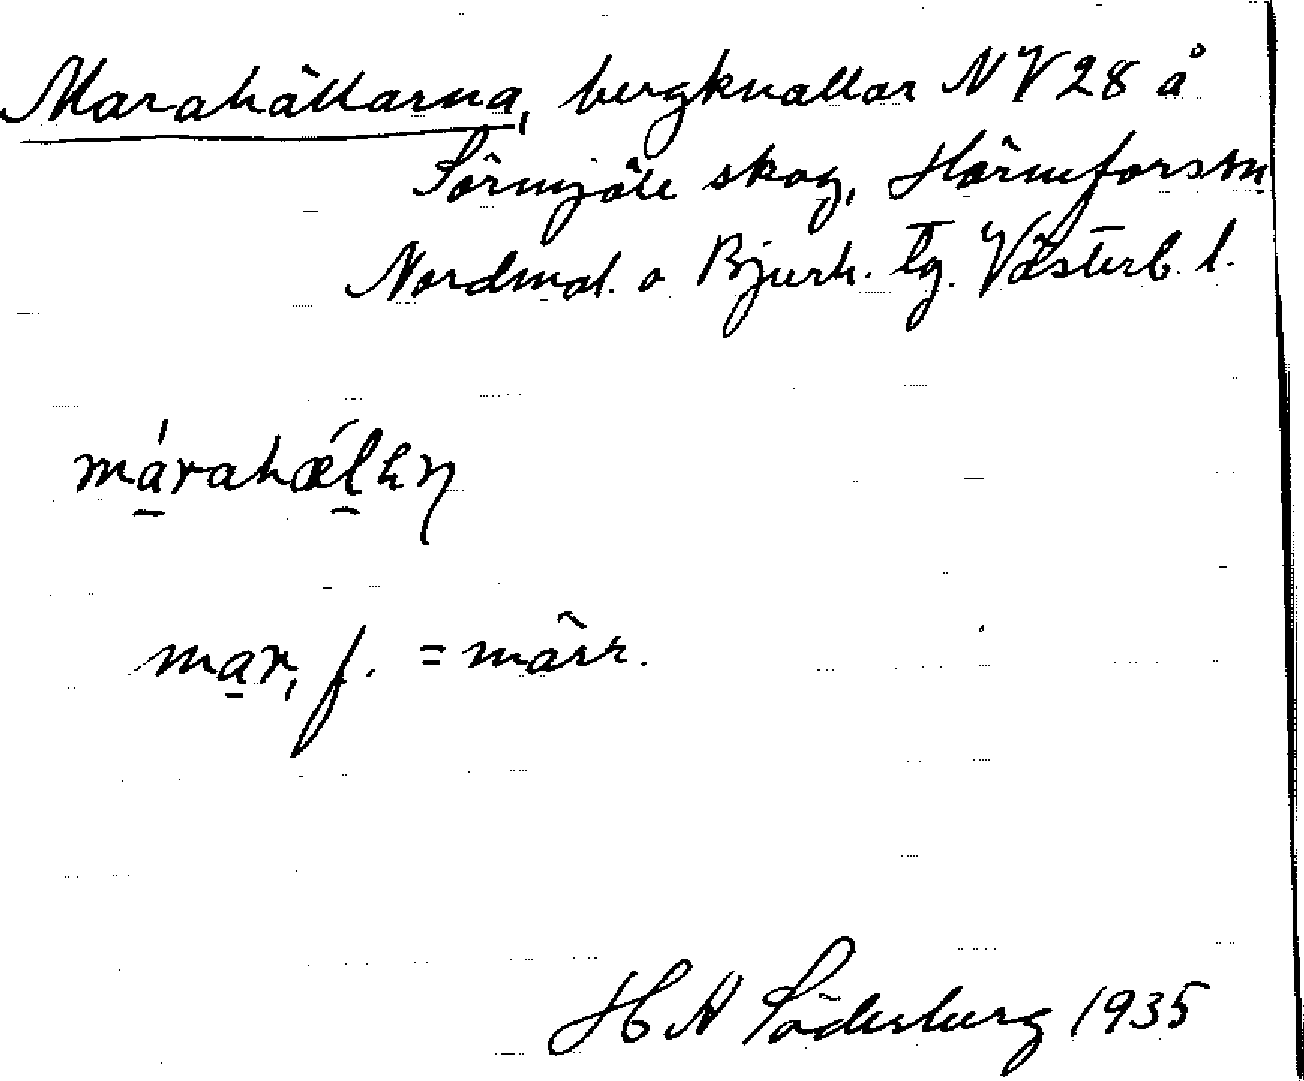 Marahällarna, bergknallar NV 28 å
Sörmjöle skog, Hörnefors sn
Nordmal. o Bjurh. tg. Västerb. l.
márahæ̀l
mar, f. = märr.
H A Söderberg 1935